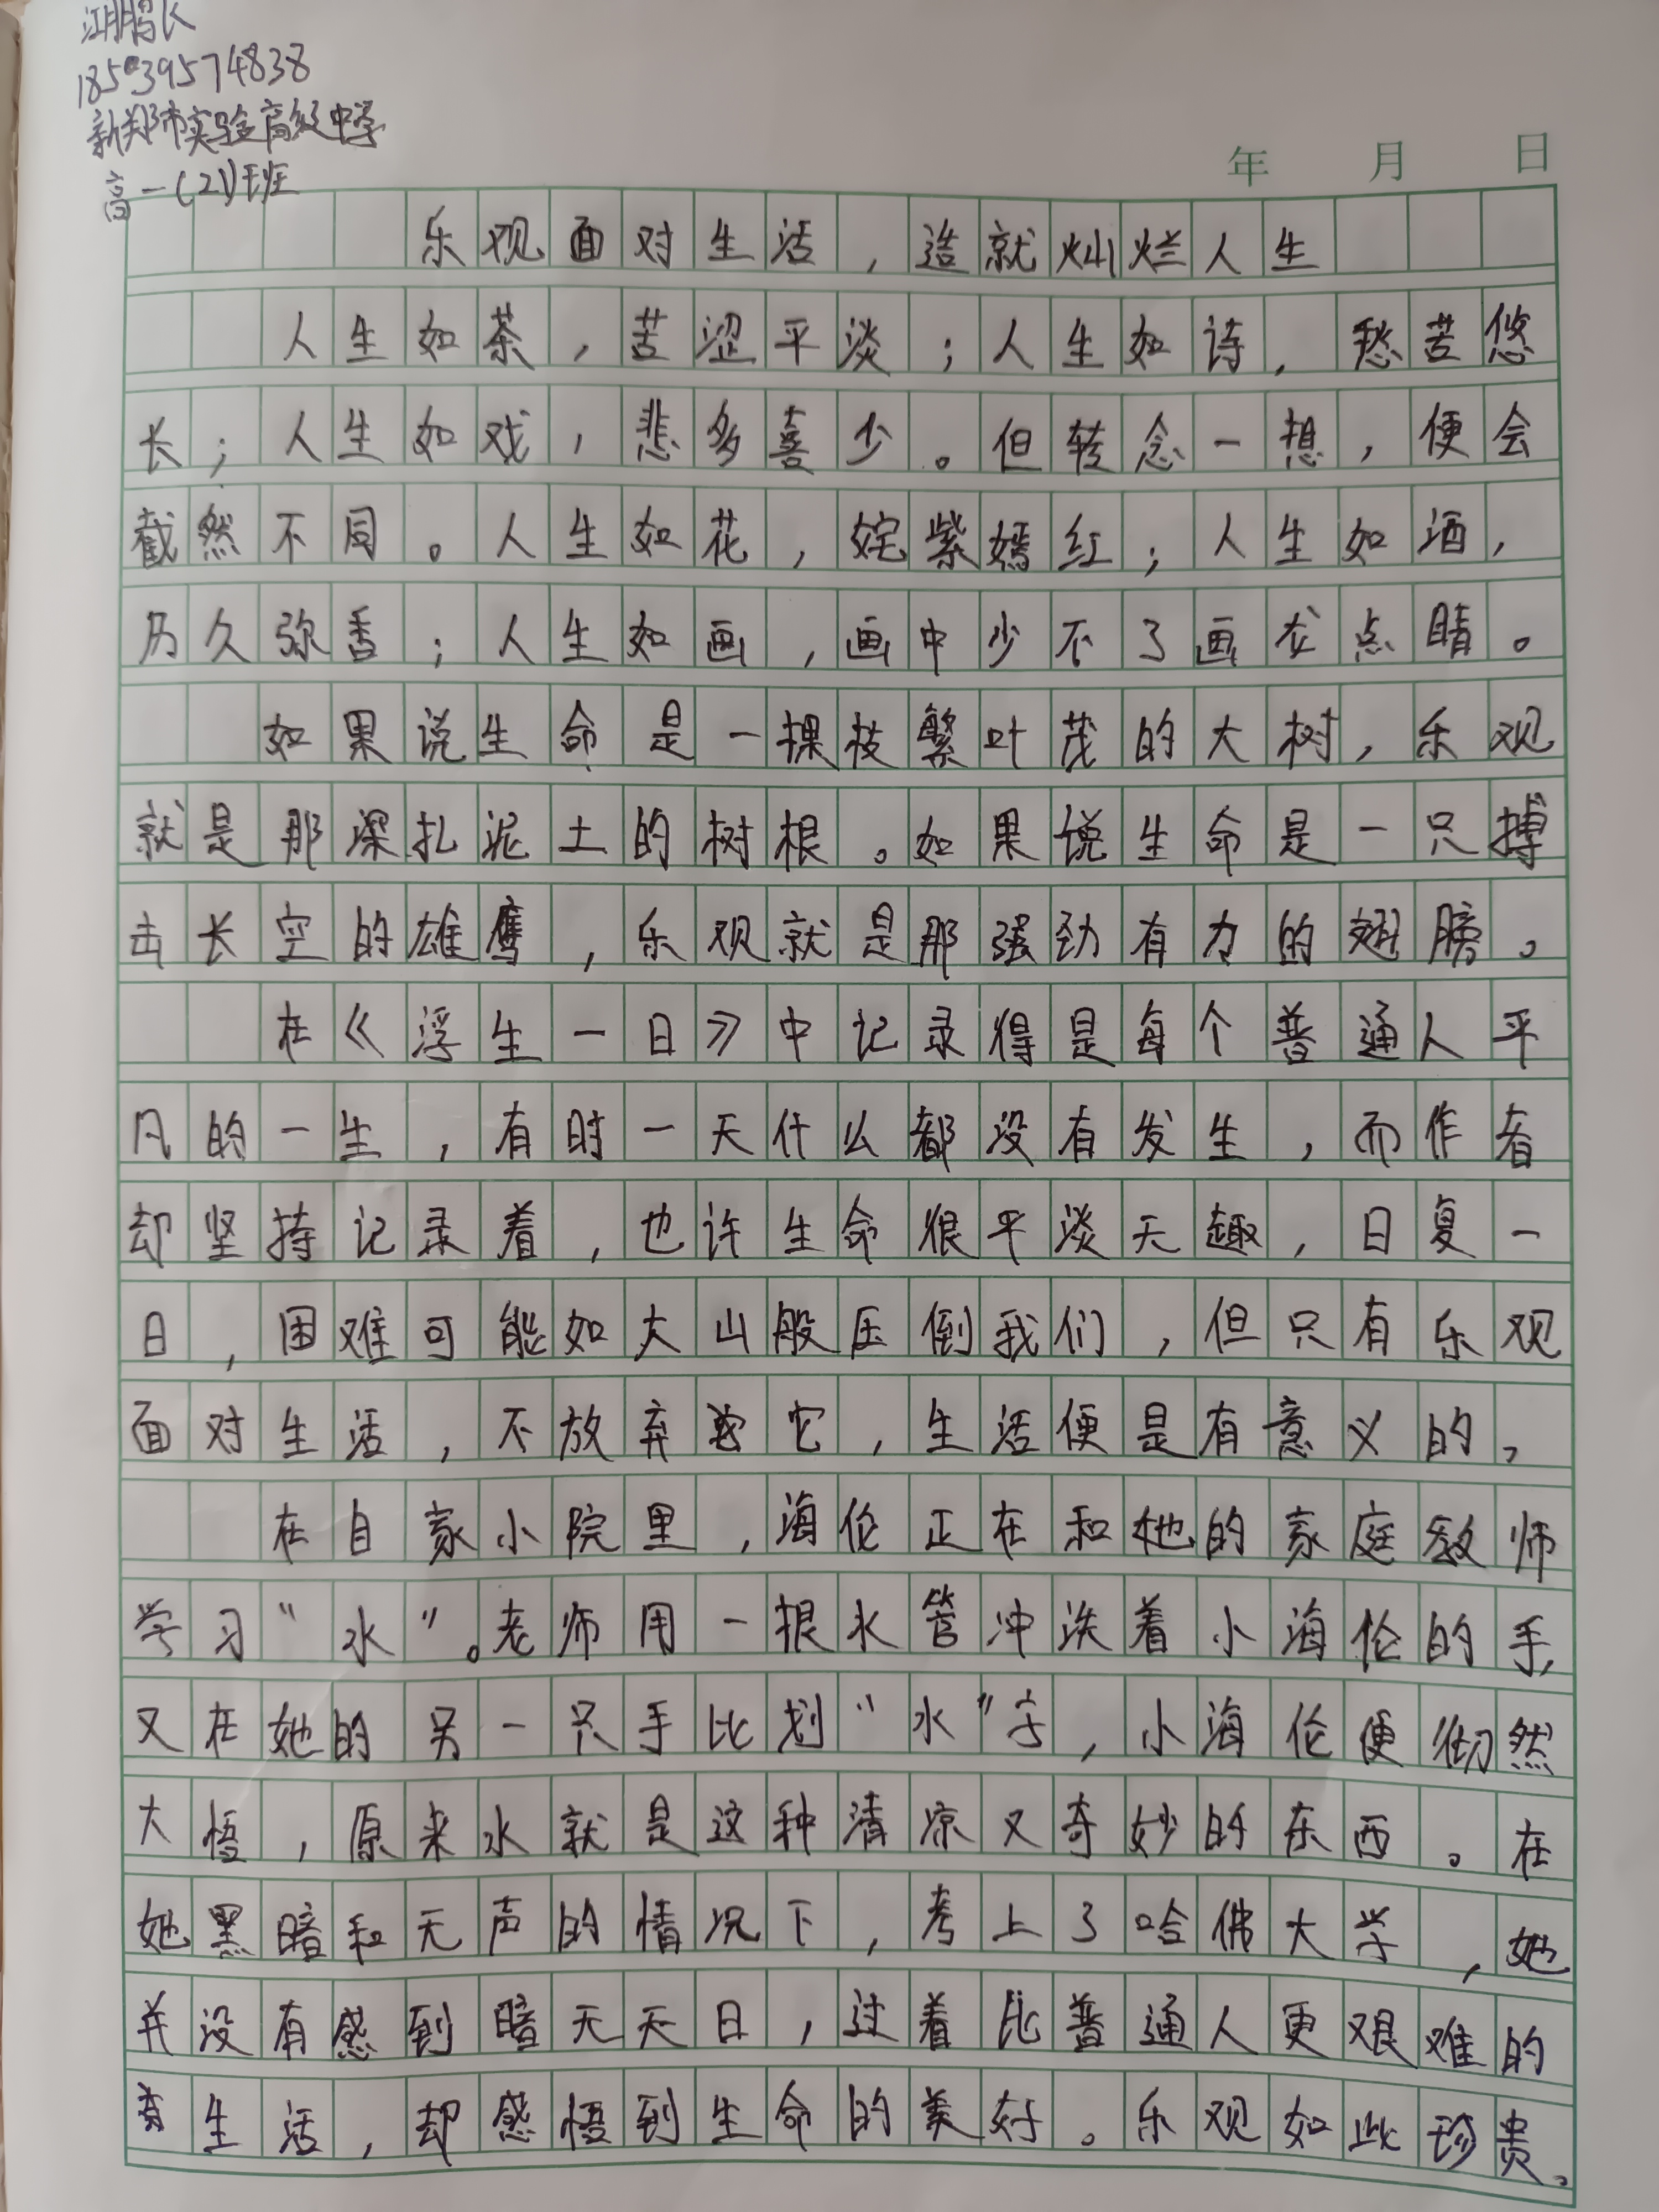 江鹏长
18539574838
新郑市实验高级中学
高一(21)班
年 月 日
乐观面对生活，造就灿烂人生
人生如茶，苦涩平淡；人生如诗，愁苦悠
长；人生如戏，悲多喜少。但转念一想，便会
截然不同。人生如花，姹紫嫣红；人生如酒，
历久弥香；人生如画，画中少不了画龙点睛。
如果说生命是一棵枝繁叶茂的大树，乐观
就是那深扎泥土的树根。如果说生命是一只搏
击长空的雄鹰，乐观就是那强劲有力的翅膀。
在《浮生一日》中记录得是每个普通人平
凡的一生，有时一天什么都没有发生，而作者
却坚持记录着，也许生命很平淡无趣，日复一
日，困难可能如大山般压倒我们，但只有乐观
面对生活，不放弃它，生活便是有意义的，
在自家小院里，海伦正在和她的家庭教师
学习“水”。老师用一根水管冲洗着小海伦的手，
又在她的另一只手比划“水”字，小海伦便彻然
大悟，原来水就是这种清凉又奇妙的东西。在
她黑暗和无声的情况下，考上了哈佛大学，她
并没有感到暗无天日，过着比普通人更艰难的
生活，却感悟到生命的美好。乐观如此珍贵。